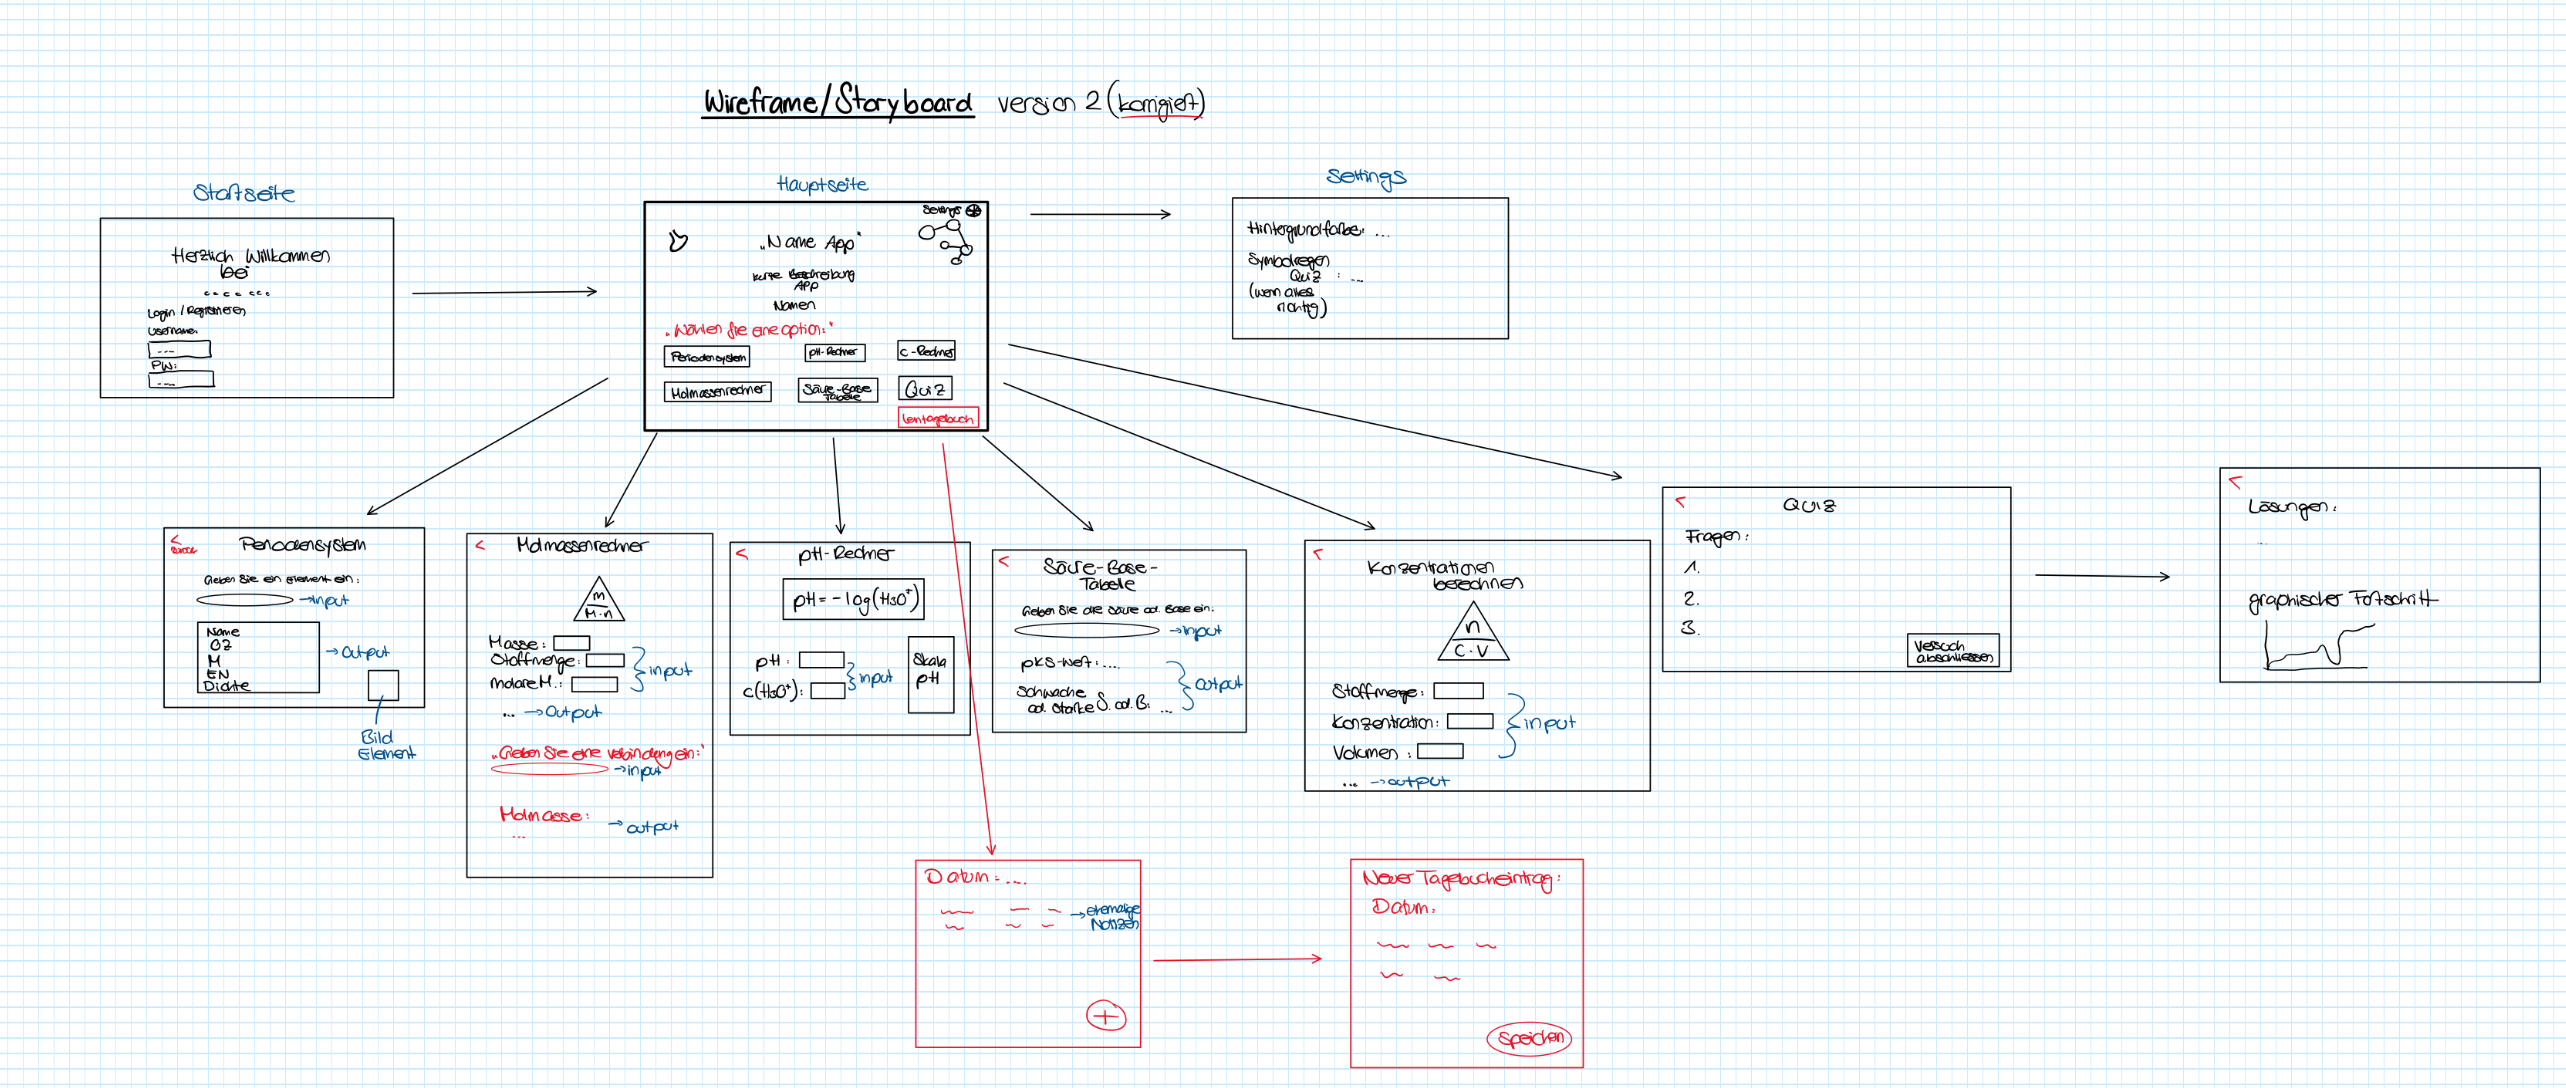 Wireframe/Storyboard version 2 (korrigiert)
Startseite
Herzlich Willkommen
bei
.......
Login / Registrieren
Username:
...
PW:
....
Hauptseite
Settings
"Name App"
kurze Beschreibung
APP
Namen
"Wählen Sie eine option:"
Periodensystem
pH-Rechner
c-Rechner
Molmassenrechner
Säure-Base
Tabelle
Quiz
Lerntagebuch
Settings
Hintergrundfarbe: ...
Symbolregen
Quiz : ...
(wenn alles
richtig)
<
zurück
Periodensystem
Geben Sie ein Element ein:
→input
Name
OZ
M
EN
Dichte
→Output
Bild
Element
<
Molmassenrechner
m
M·n
Masse:
Stoffmenge:
molare M.:
input
... →Output
"Geben Sie eine Verbindung ein:"
→input
Molmasse:
...
→output
<
pH-Rechner
pH = -log(H3O⁺)
pH:
c(H3O⁺):
input
Skala
pH
<
Säure-Base-
Tabelle
Geben Sie die Säure od. Base ein:
→input
pKS-Wert: ....
schwache
od. starke S. od. B: ...
Output
<
Konzentrationen
berechnen
n
c·V
Stoffmenge:
Konzentration:
Volumen:
input
... →output
<
Quiz
Fragen:
1.
2.
3.
Versuch
abschliessen
<
Lösungen:
..
graphischer Fortschritt
Datum: ....
→ehemalige
Notizen
+
Neuer Tagebucheintrag:
Datum:
Speichern